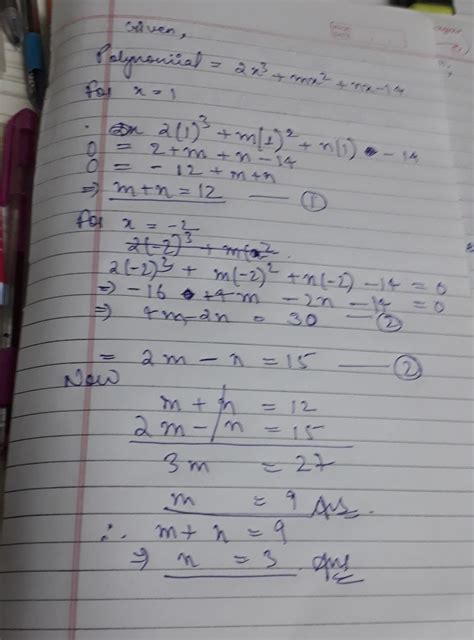 Given,
Polynomial = 2x³ + mx² + nx - 14
for x = 1
2(1)³ + m(1)² + n(1) - 14
0 = 2 + m + n - 14
0 = - 12 + m + n
⇒ m + n = 12 — ①
for x = -2
2(-2)³ + m(x²
2(-2)³ + m(-2)² + n(-2) - 14 = 0
⇒ -16 + 4m - 2n - 14 = 0
⇒ 4m - 2n = 30 — ②
= 2m - n = 15 — ②
Now
m + n = 12
2m - n = 15
3m = 27
m = 9 Ans.
∴ m + n = 9
⇒ n = 3 Ans